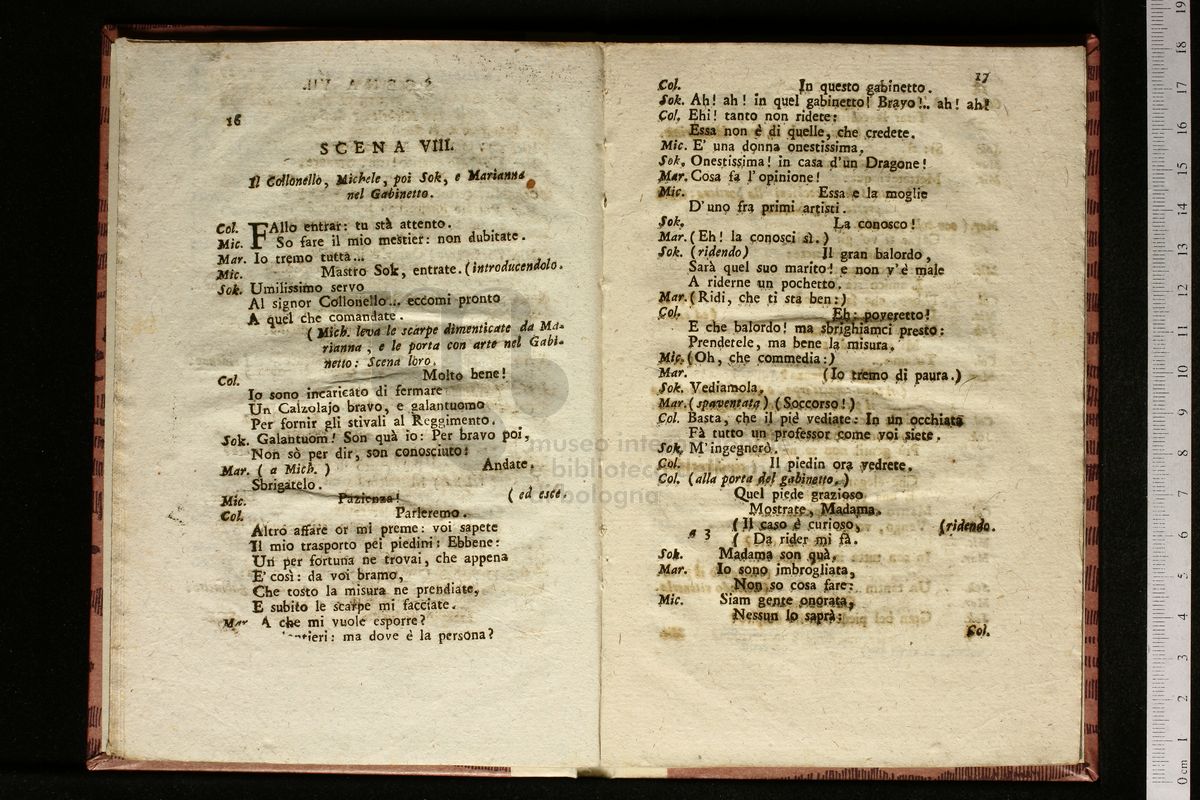 16
SCENA VIII.
Il Collonello, Michele, poi Sok, e Marianna
nel Gabinetto.
Col. FAllo entrar: tu stà attento.
Mic. So fare il mio mestier: non dubitate.
Mar. Io tremo tutta...
Mic. Mastro Sok, entrate. (introducendolo.
Sok. Umilissimo servo
Al signor Collonello... eccomi pronto
A quel che comandate.
(Mich. leva le scarpe dimenticate da Ma-
rianna, e le porta con arte nel Gabi-
netto: Scena loro.
Col. Molto bene!
Io sono incaricato di fermare
Un Calzolajo bravo, e galantuomo
Per fornir gli stivali al Reggimento.
Sok. Galantuom! Son quà io: Per bravo poi,
Non sò per dir, son conosciuto:
Mar. (a Mich.) Andate,
Sbrigatelo.
Mic. Pazienza! (ed esce.
Col. Parleremo.
Altro affare or mi preme: voi sapete
Il mio trasporto pei piedini: Ebbene:
Un per fortuna ne trovai, che appena
E' così: da voi bramo,
Che tosto la misura ne prendiate,
E subito le scarpe mi facciate.
Mar A che mi vuole esporre?
ntieri: ma dove è la persona?
17
Col. In questo gabinetto.
Sok. Ah! ah! in quel gabinetto! Bravo!.. ah! ah!
Col. Ehi! tanto non ridete:
Essa non è di quelle, che credete.
Mic. E' una donna onestissima.
Sok. Onestissima! in casa d'un Dragone!
Mar. Cosa fa l'opinione!
Mic. Essa e la moglie
D'uno fra primi artisti.
Sok. La conosco!
Mar. (Eh! la conosci sì.)
Sok. (ridendo) Il gran balordo,
Sarà quel suo marito! e non v'è male
A riderne un pochetto.
Mar. (Ridi, che ti sta ben:)
Col. Eh: poveretto!
E che balordo! ma sbrighiamci presto:
Prendetele, ma bene la misura.
Mic. (Oh, che commedia:)
Mar. (Io tremo di paura.)
Sok. Vediamola.
Mar. (spaventata) (Soccorso!)
Col. Basta, che il piè vediate: In un occhiata
Fà tutto un professor come voi siete.
Sok. M'ingegnerò.
Col. Il piedin ora vedrete.
Col. (alla porta del gabinetto.)
Quel piede grazioso
Mostrate, Madama,
a 3 (Il caso è curioso, (ridendo.
( Da rider mi fà.
Sok. Madama son quà.
Mar. Io sono imbrogliata,
Non so cosa fare:
Mic. Siam gente onorata,
Nessun lo saprà:
Col.
museo inter
biblioteca
bologna
0 cm 1 2 3 4 5 6 7 8 9 10 11 12 13 14 15 16 17 18 19